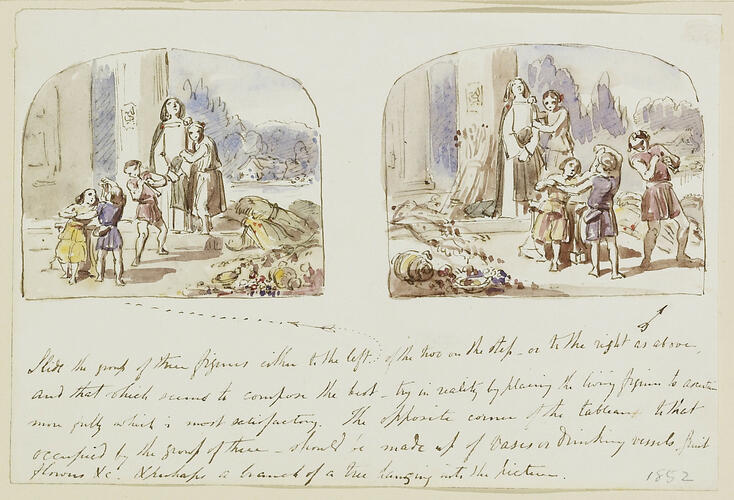 Slide the group of three figures either to the left of the two on the step - or to the right as above,
and that which seems to compose the best - try in reality by placing the living figures to ascertain
more fully which is most satisfactory. The opposite corner of the tableaux to that
occupied by the group of three - should be made up of vases or drinking vessels, fruit
flowers &c. & perhaps a branch of a tree hanging into the picture.
1852